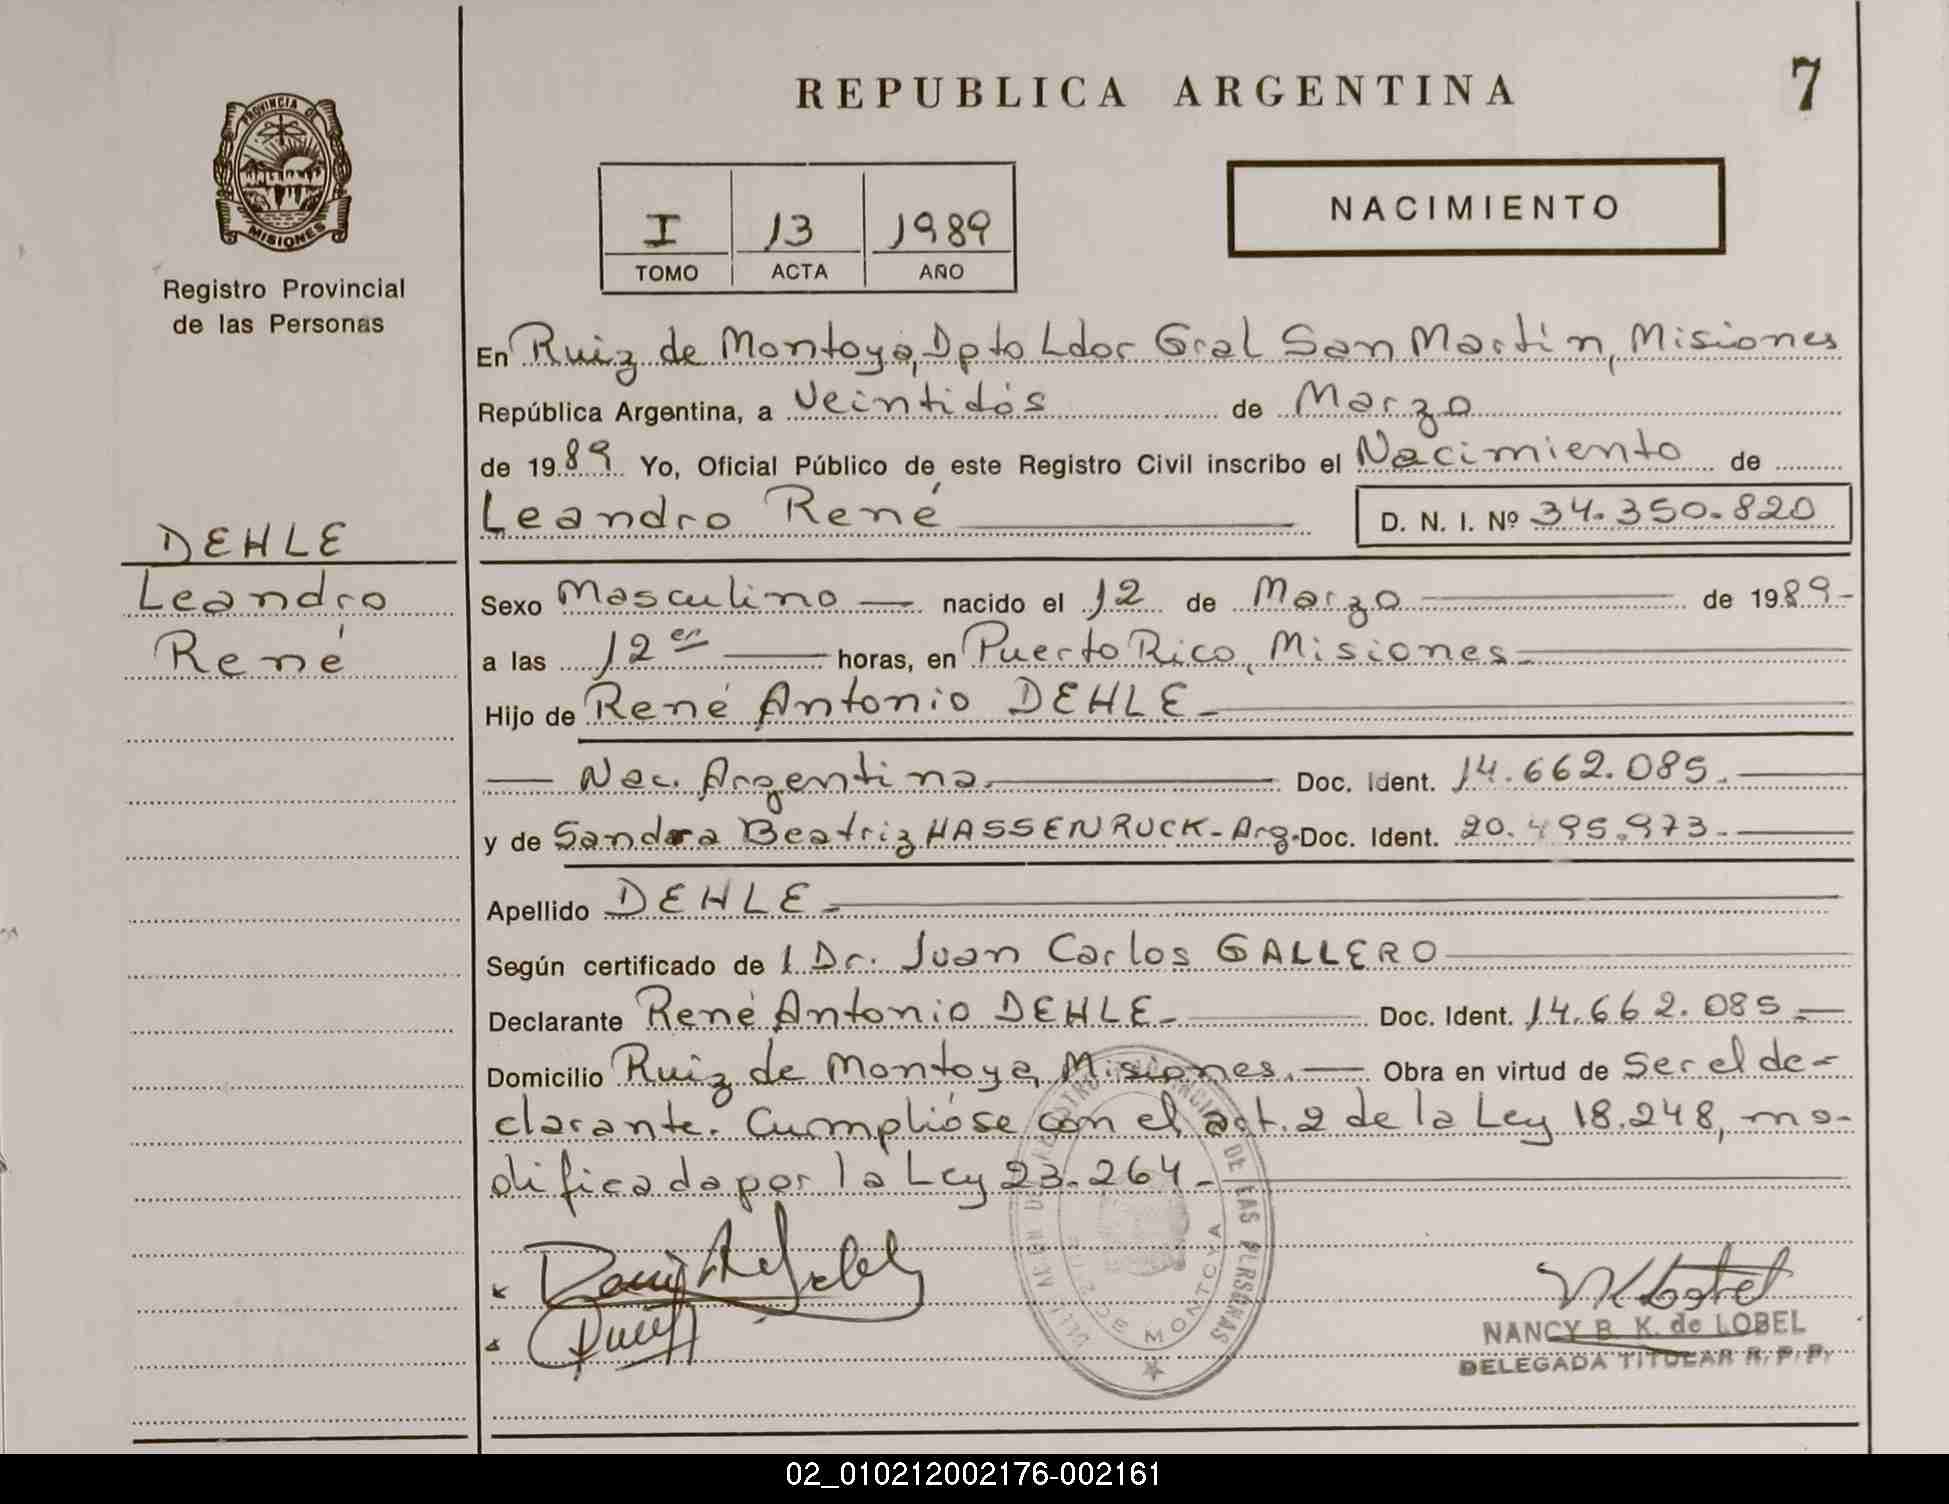 REPUBLICA ARGENTINA
7
PROVINCIA DE
MISIONES
Registro Provincial
de las Personas
I 13 1989
TOMO ACTA AÑO
NACIMIENTO
En Ruiz de Montoya, Dpto Ldor Gral San Martín, Misiones
República Argentina, a Veintidós de Marzo
de 1989 Yo, Oficial Público de este Registro Civil inscribo el Nacimiento de
Leandro René D. N. I. Nº 34.350.820
DEHLE
Leandro
René
Sexo Masculino nacido el 12 de Marzo de 1989-
a las 12 horas, en Puerto Rico, Misiones-
Hijo de René Antonio DEHLE-
Nac. Argentina. Doc. Ident. 14.662.085.
y de Sandra Beatriz HASSENRUCK- Arg. Doc. Ident. 20.495.973.
Apellido DEHLE-
Según certificado de l Dr. Juan Carlos GALLERO
Declarante René Antonio DEHLE- Doc. Ident. 14.662.085-
Domicilio Ruiz de Montoya, Misiones. Obra en virtud de Ser el de=
clarante. Cumplióse con el art. 2 de la Ley 18.248, mo-
dificada por la Ley 23.264-
DE LAS PERSONAS
DE MONTOYA
NANCY B. K. de LOBEL
DELEGADA TITULAR R. P. P.
02_010212002176-002161